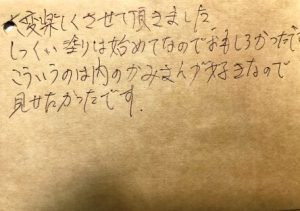 大変楽しくさせて頂きました。
しっくい塗りは始めてなのでおもしろかったで
こういうのは内のかみさんが好きなので
見せたかったです.